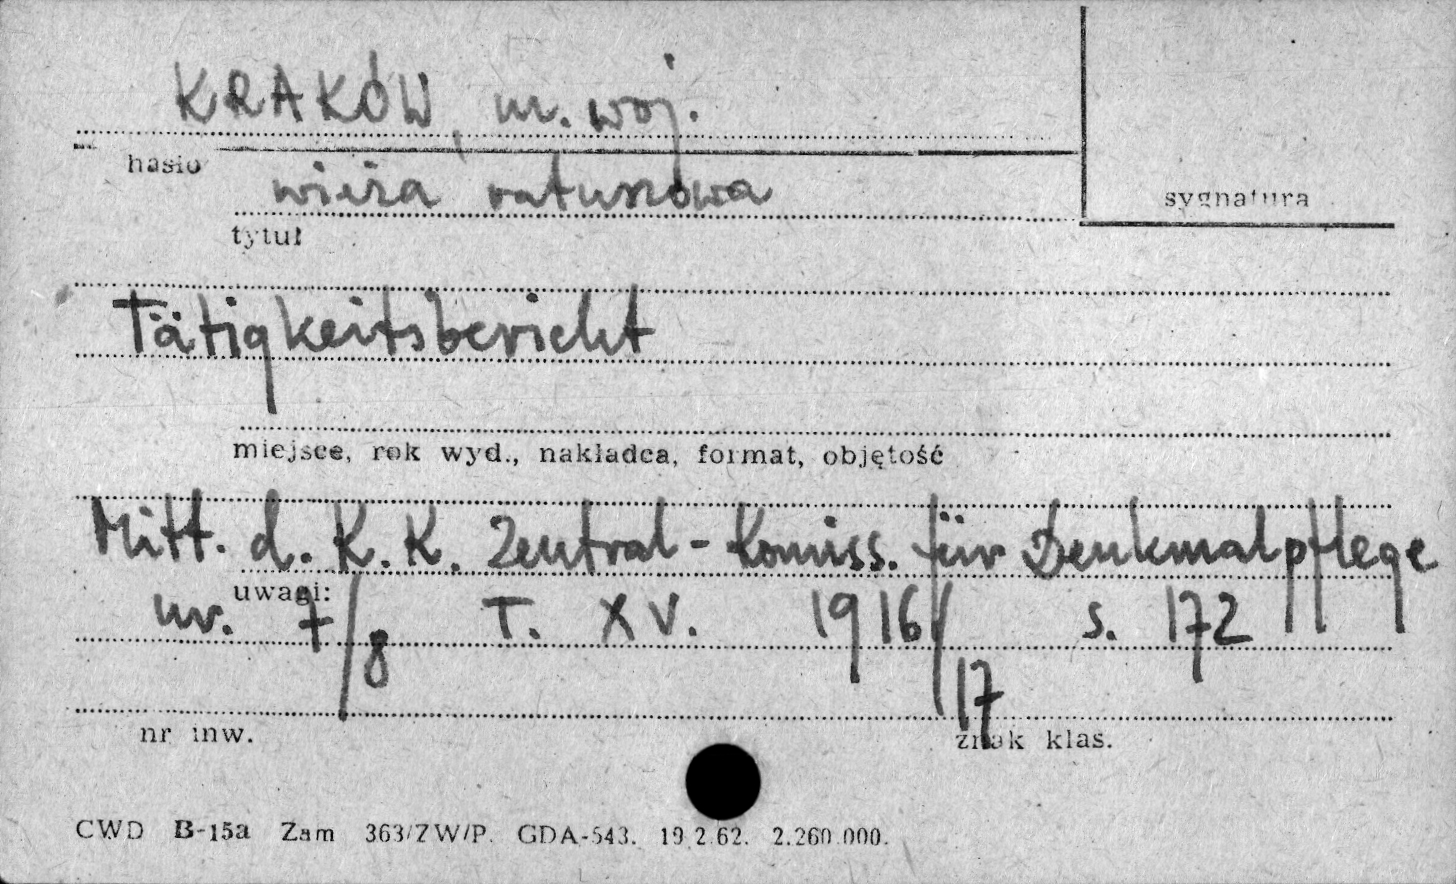 KRAKÓW, m. woj.
hasło
wieża ratuszowa
sygnatura
tytuł
Tätigkeitsbericht
miejsce, rok wyd., nakładca, format, objętość
Mitt. d. K. K. Zentral-Komiss. für Denkmalpflege
uwagi:
nr. 7/8 T. XV. 1916/17 s. 172
nr inw.
znak klas.
CWD B-15a Zam 363/ZW/P. GDA-543. 19.2.62. 2.260.000.